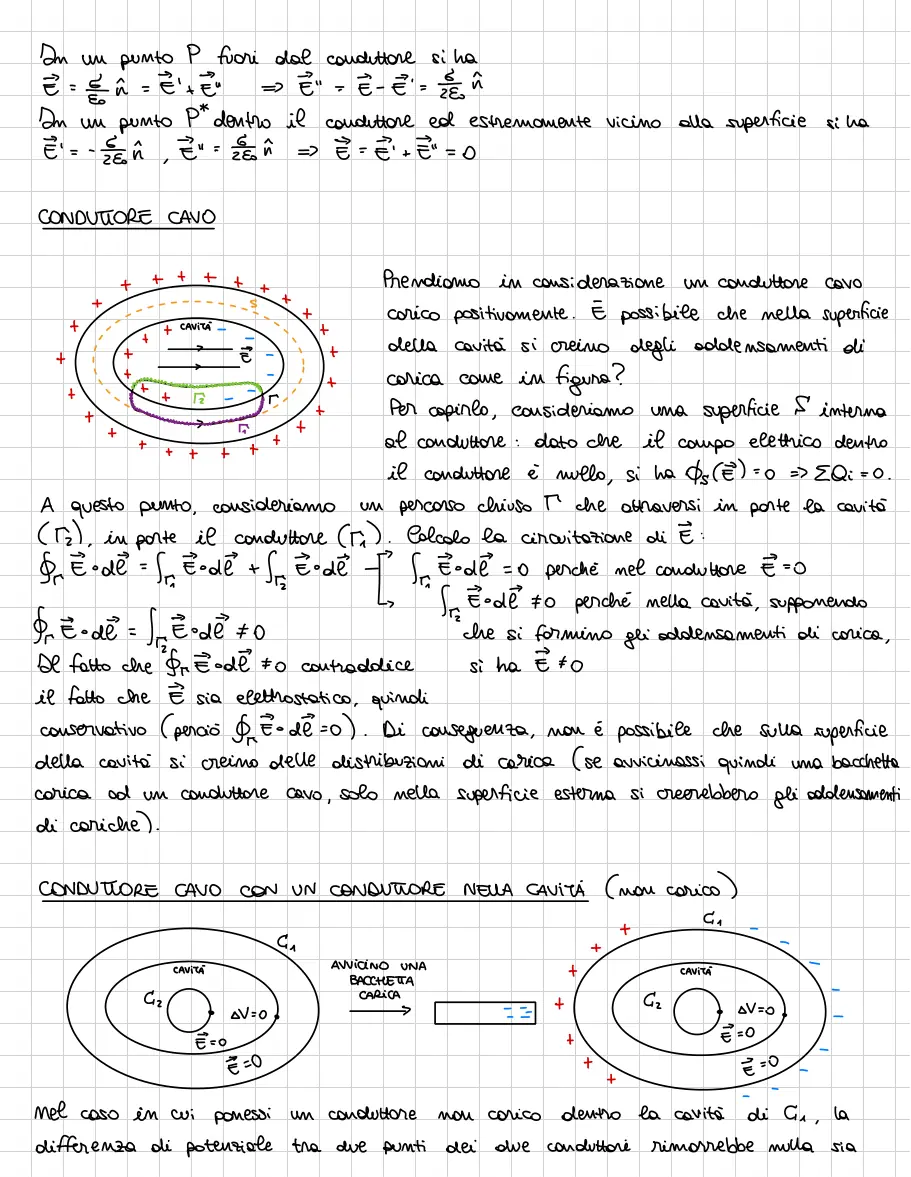 In un punto P fuori dal conduttore si ha
E⃗ = σ/ε₀ n̂ = E⃗' + E⃗'' ⇒ E⃗'' = E⃗ - E⃗' = σ/2ε₀ n̂
In un punto P* dentro il conduttore ed estremamente vicino alla superficie si ha
E⃗' = - σ/2ε₀ n̂ , E⃗'' = σ/2ε₀ n̂ ⇒ E⃗ = E⃗' + E⃗'' = 0
CONDUTTORE CAVO
S
CAVITÀ
E⃗
Γ₂
Γ
Γ₁
Prendiamo in considerazione un conduttore cavo
carico positivamente. È possibile che nella superficie
della cavità si creino degli addensamenti di
carica come in figura?
Per capirlo, consideriamo una superficie S interna
al conduttore : dato che il campo elettrico dentro
il conduttore è nullo, si ha ϕs(E⃗) = 0 ⇒ ΣQi = 0.
A questo punto, consideriamo un percorso chiuso Γ che attraversi in parte la cavità
(Γ₂), in parte il conduttore (Γ₁). Calcolo la circuitazione di E⃗ :
∮Γ E⃗ • dl⃗ = ∫Γ₁ E⃗ • dl⃗ + ∫Γ₂ E⃗ • dl⃗ → ∫Γ₁ E⃗ • dl⃗ = 0 perché nel conduttore E⃗ = 0
→ ∫Γ₂ E⃗ • dl⃗ ≠ 0 perché nella cavità, supponendo
che si formino gli addensamenti di carica,
si ha E⃗ ≠ 0
∮Γ E⃗ • dl⃗ = ∫Γ₂ E⃗ • dl⃗ ≠ 0
Il fatto che ∮Γ E⃗ • dl⃗ ≠ 0 contraddice
il fatto che E⃗ sia elettrostatico, quindi
conservativo (perciò ∮Γ E⃗ • dl⃗ = 0). Di conseguenza, non é possibile che sulla superficie
della cavità si creino delle distribuzioni di carica (se avvicinassi quindi una bacchetta
carica ad un conduttore cavo, solo nella superficie esterna si creerebbero gli addensamenti
di cariche).
CONDUTTORE CAVO CON UN CONDUTTORE NELLA CAVITÀ (non carico)
C₁
CAVITÀ
C₂
ΔV=0
E⃗=0
E⃗=0
AVVICINO UNA
BACCHETTA
CARICA
C₁
CAVITÀ
C₂
ΔV=0
E⃗=0
E⃗=0
Nel caso in cui ponessi un conduttore non carico dentro la cavità di C₁, la
differenza di potenziale tra due punti dei due conduttori rimarrebbe nulla sia